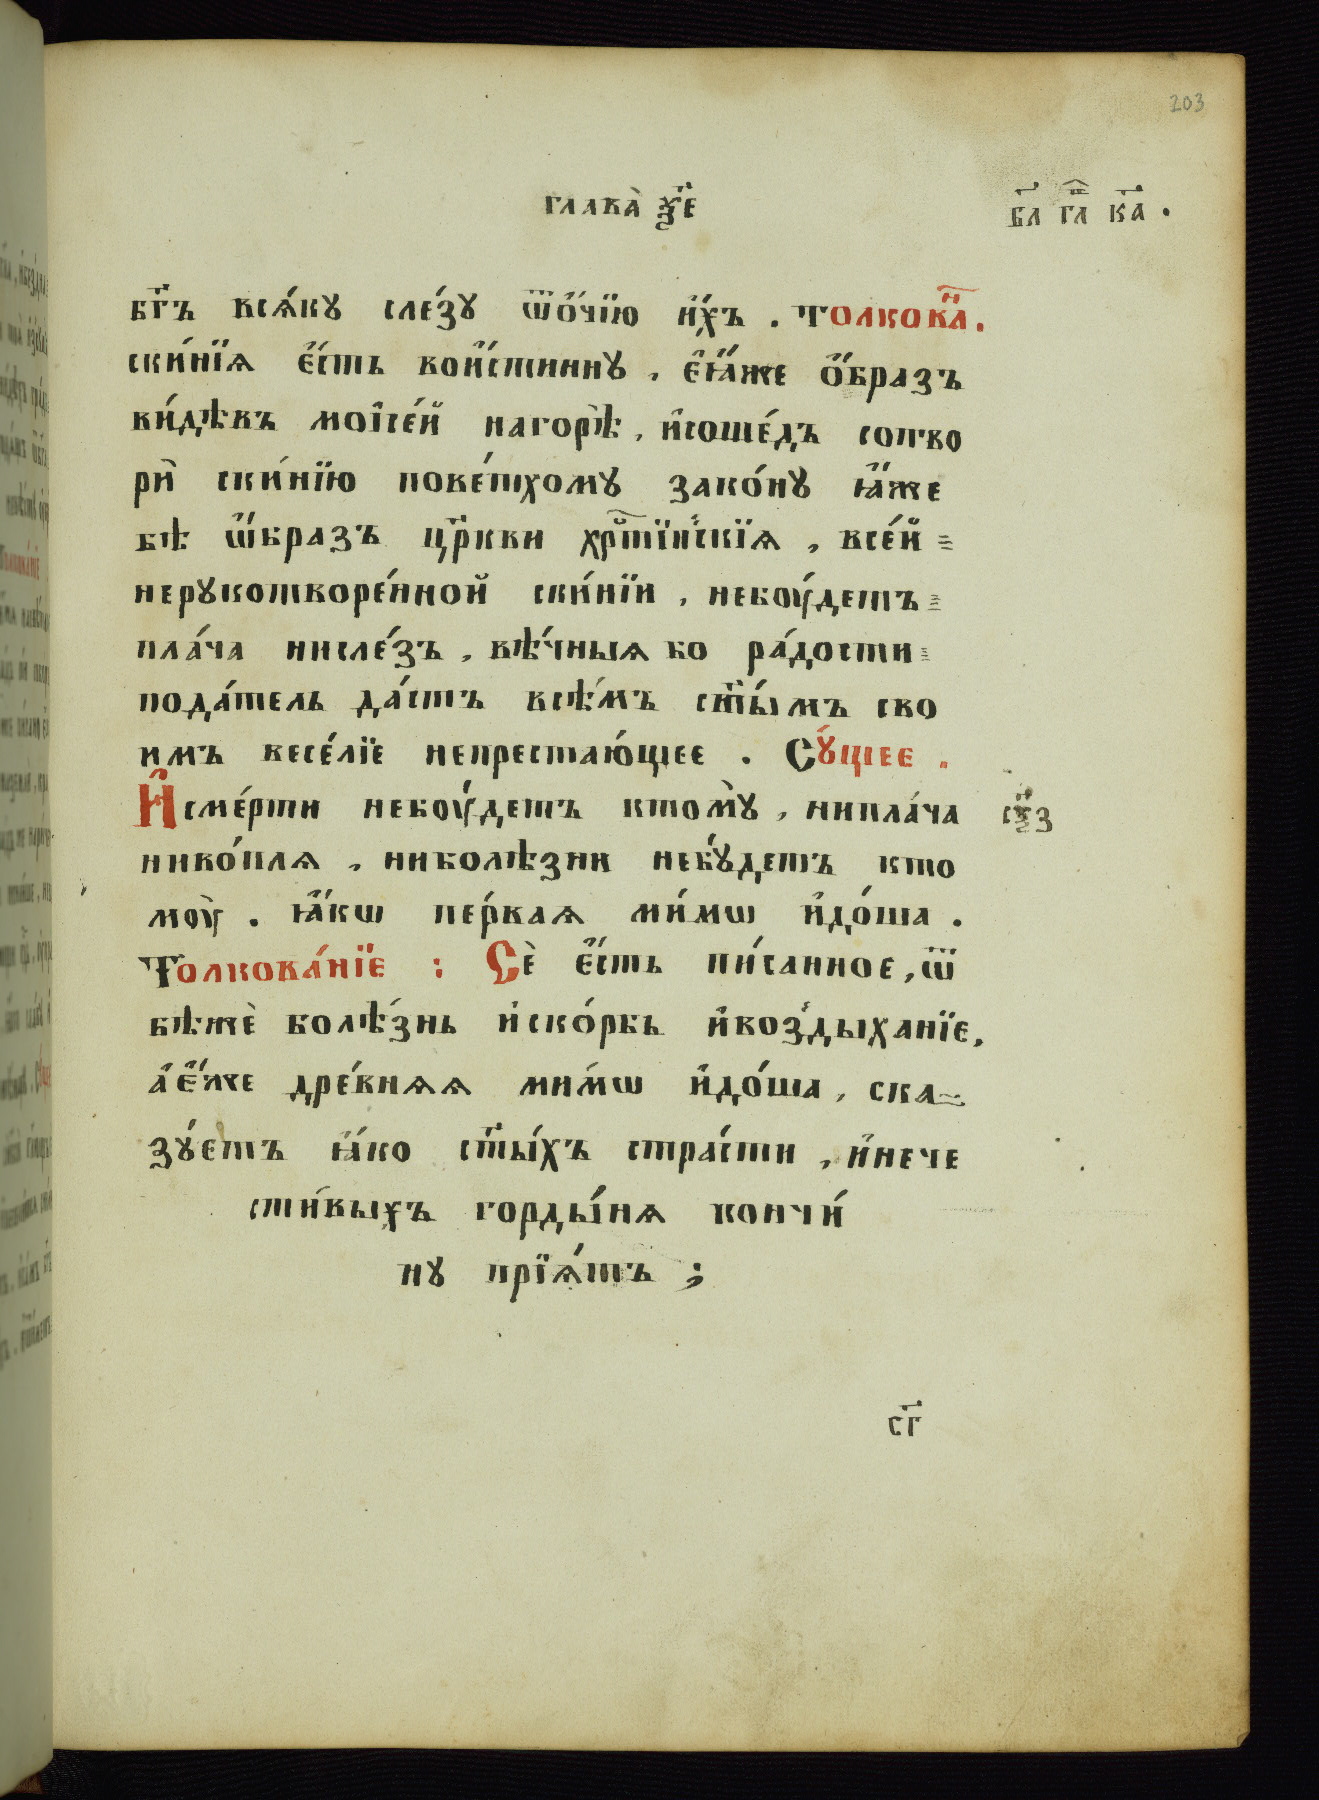 203
глава̀ ѯ҃е
бл҃ гл҃ ка҃ .
бг҃ъ всѧ́ку сле́зу ѿо́чїю и҆́хъ . Толкова҃н .
ски́нїѧ є҆́сть вои҆́стинну , є҆ꙗ҆́же о҆́бразъ
ви́дѣвъ моѵсе́й нагорѣ̀ , и҆соше́дъ сотво
рѝ ски́нїю пове́тхому зако́ну ꙗ҆́же
бѣ ѡ҆́бразъ цр҃кви хрⷭ҇тїи́нскїѧ , все́й
нерукотворе́нной ски́нїи , небоу́детъ
пла́ча нисле́зъ , вѣ́чныѧ бо ра́дости
пода́тель да́стъ всѣ́мъ ст҃ы́мъ сво
имъ весе́лїе непрестаю́щее . Су́щее .
И҆сме́рти небоу́детъ ктомꙋ̀ , нипла́ча
сѯ҃з
ниво́плѧ , ниболѣзни небу́детъ кто
моу̀ . ꙗ҆́кѡ пе́рваѧ ми́мѡ и҆до́ша .
Толкова́нїе : Сѐ є҆́сть пи́санное , ѿ
бѣжѐ болѣ́знь и҆ско́рбь и҆воз̾дыханїе ,
а҆є҆́же дре́внѧѧ ми́мѡ и҆до́ша , ска
зу́етъ ꙗ҆́ко ст҃ы́хъ стра́сти , и҆нече
сти́выхъ горды́нѧ кончи́
ну прїѧ́тъ ;
сг҃